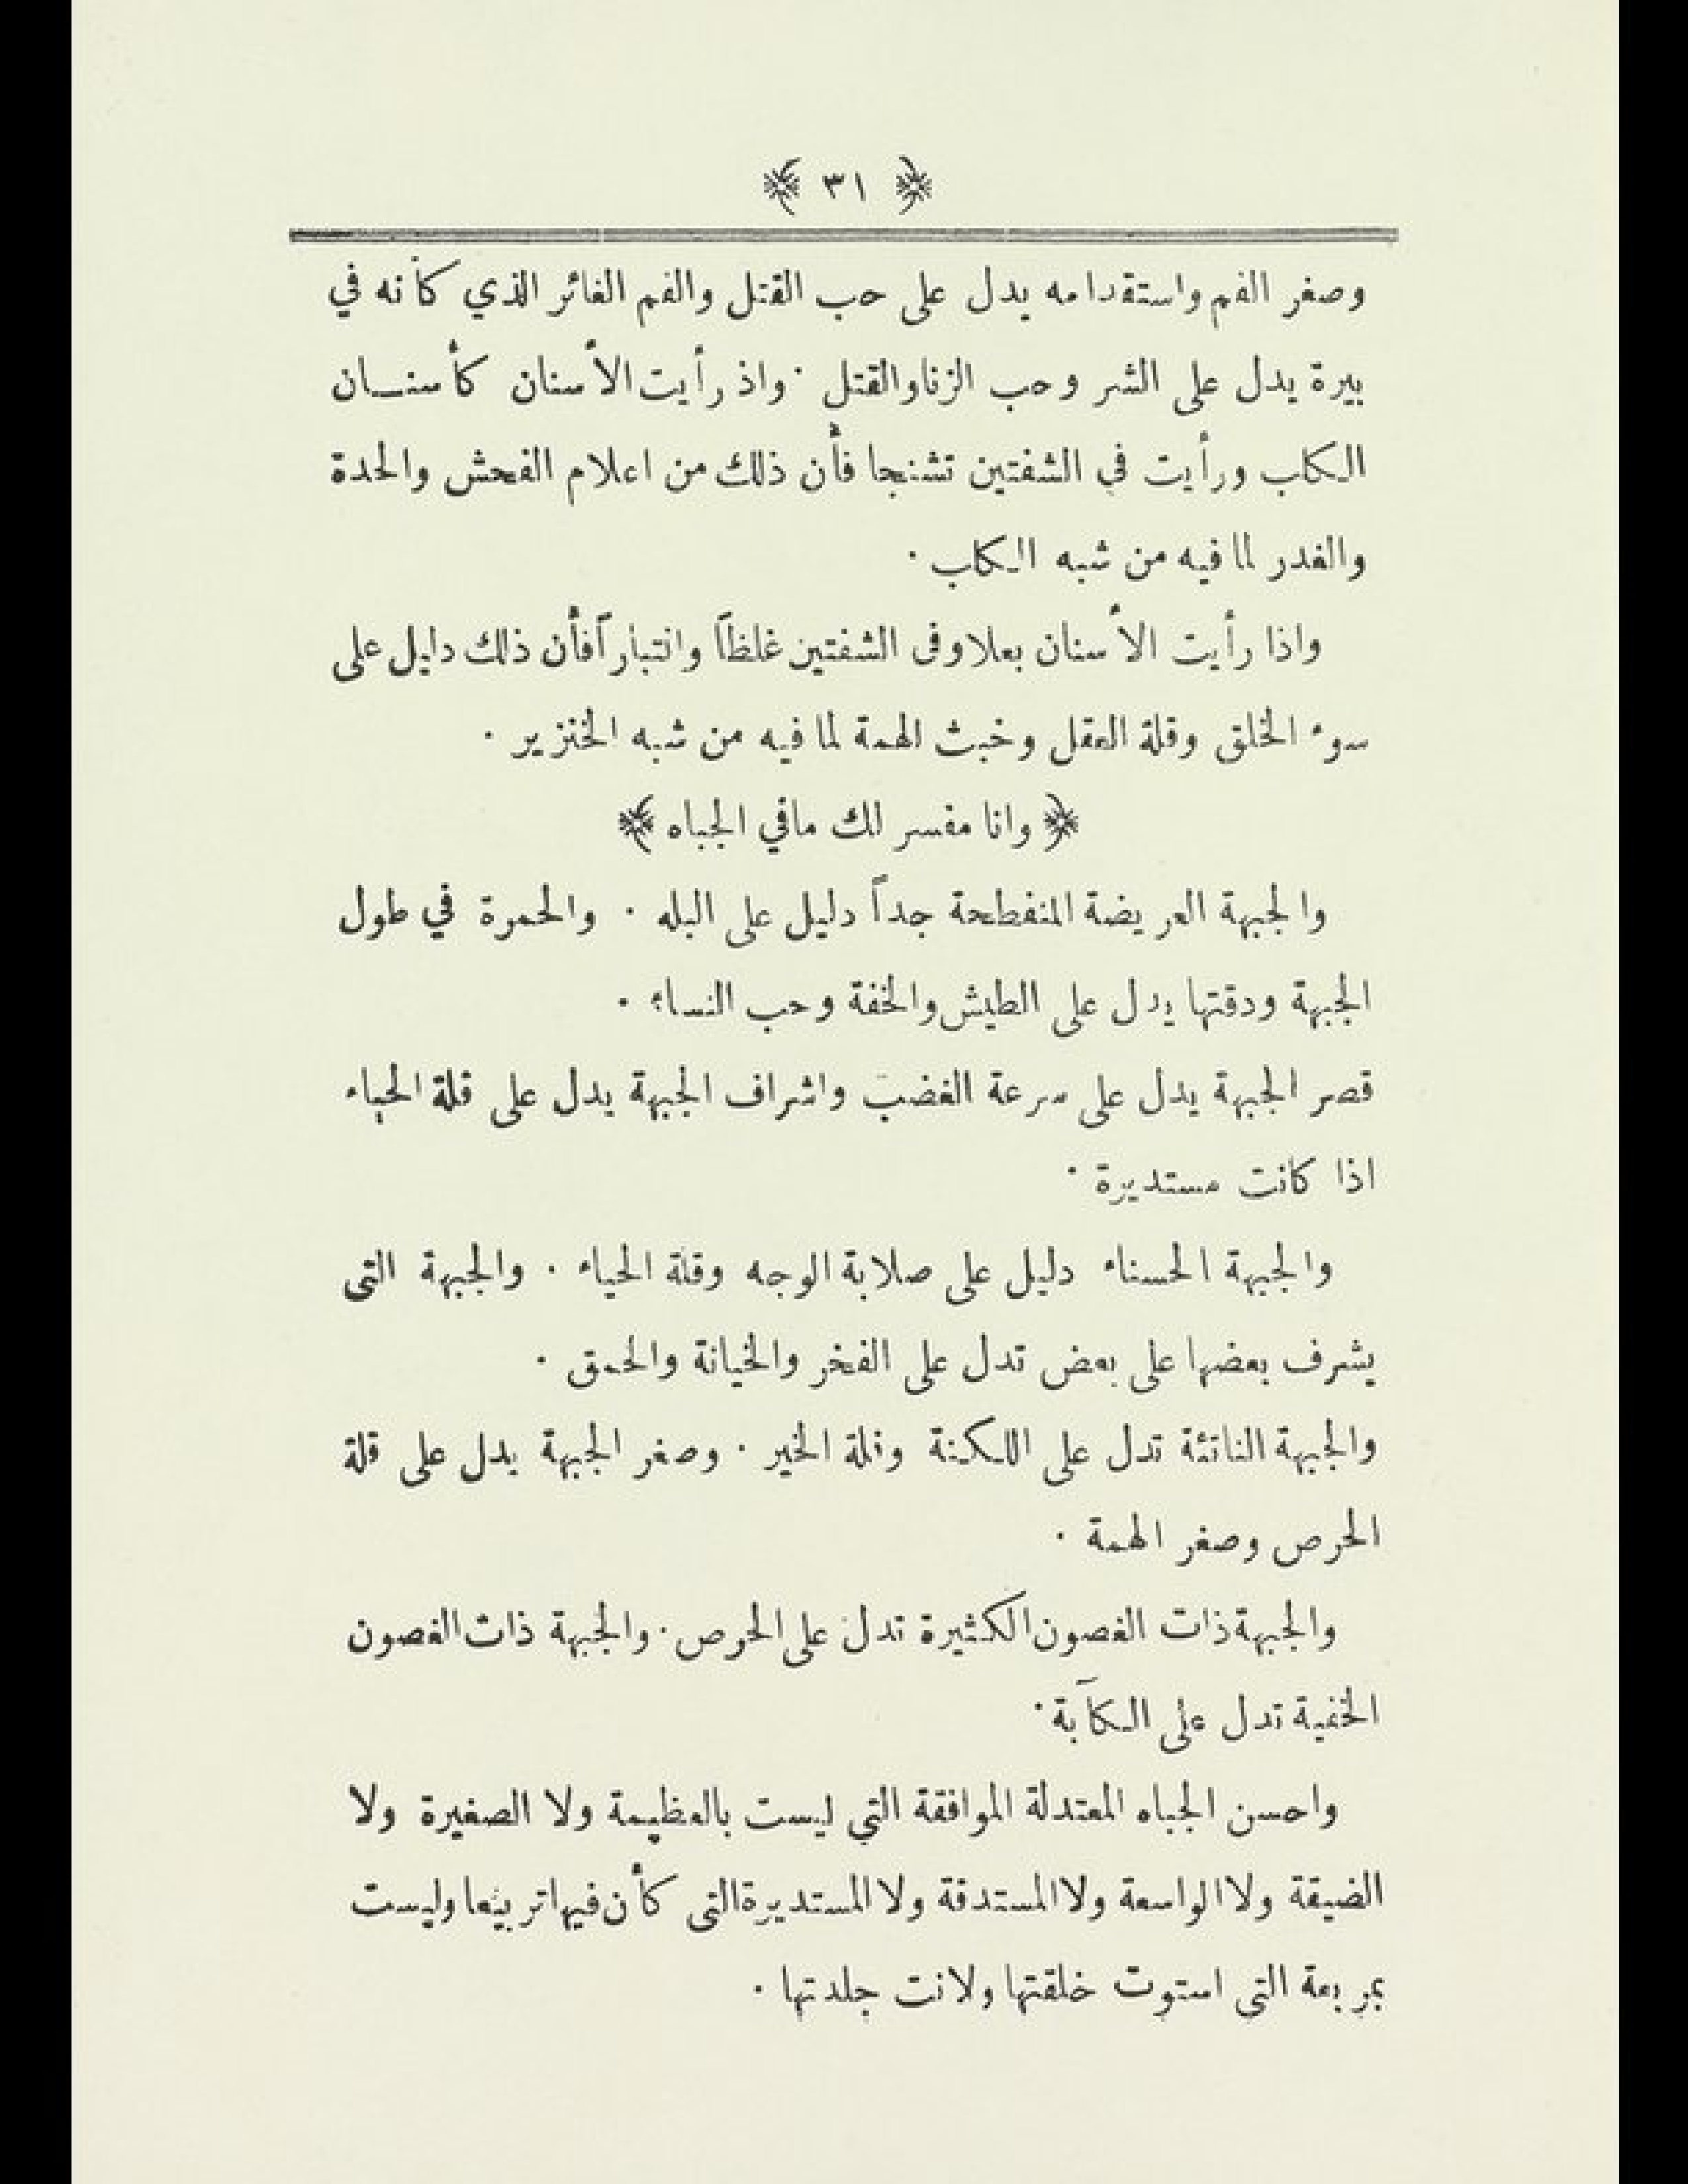 ﴿ ٣١ ﴾
وصغر الفم واستقدامه يدل على حب القتل والفم الغائر الذي كأنه في
بيرة يدل على الشر وحب الزنا والقتل · واذ رأيت الأسنان كأسنــان
الكلب ورأيت في الشفتين تشنجا فأن ذلك من اعلام الفحش والحدة
والغدر لما فيه من شبه الكلب ·
واذا رأيت الأسنان بعلا وفى الشفتين غلظاً وانتباراً فأن ذلك دليل على
سوء الخلق وقلة العقل وخبث الهمة لما فيه من شبه الخنزير ·
﴿ وانا مفسر لك مافي الجباه ﴾
والجبهة العريضة المنفطحة جداً دليل على البله · والحمرة في طول
الجبهة ودقتها يدل على الطيش والخفة وحب النساء ·
قصر الجبهة يدل على سرعة الغضب واشراف الجبهة يدل على قلة الحياء
اذا كانت مستديرة ·
والجبهة الحسناء دليل على صلابة الوجه وقلة الحياء · والجبهة التى
يشرف بعضها على بعض تدل على الفخر والخيانة والحمق ·
والجبهة الناتئة تدل على اللكنة وقلة الخير · وصغر الجبهة يدل على قلة
الحرص وصغر الهمة ·
والجبهة ذات الغصون الكثيرة تدل على الحرص · والجبهة ذات الغصون
الخفية تدل على الكآبة ·
واحسن الجباه المعتدلة الموافقة التي ليست بالعظيمة ولا الصغيرة ولا
الضيقة ولا الواسعة ولا المستدقة ولا المستديرة التى كأن فيها تربيعا وليست
بمربعة التى استوت خلقتها ولانت جلدتها ·